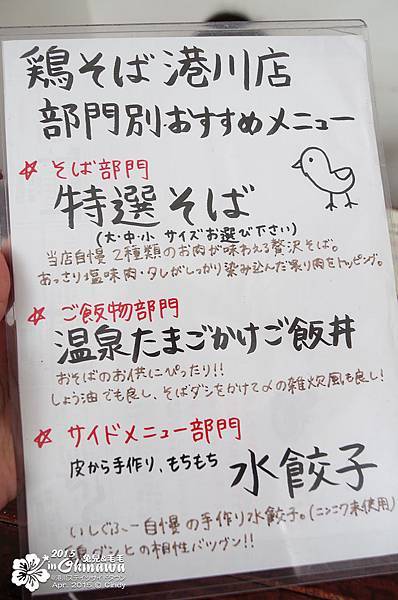 鶏そば 港川店
部門別おすすめメニュー
☆ そば部門
特選そば
(大・中・小 サイズお選び下さい)
当店自慢 2種類のお肉が味わえる贅沢そば。
あっさり塩味肉・タレがしっかり染み込んだ炙り肉をトッピング。
☆ ご飯物部門
温泉たまごかけご飯丼
おそばのお供にぴったり!!
しょう油でも良し、そばダシをかけて〆の雑炊風も良し!
☆ サイドメニュー部門
皮から手作り、もちもち 水餃子
いしぐふー自慢の手作り水餃子。(ニンニク未使用)
鶏ダシとの相性バツグン!!
2015
兔兒&毛毛
in Okinawa
港川ステイツサイドタウン
Apr. 2015 © Cindy